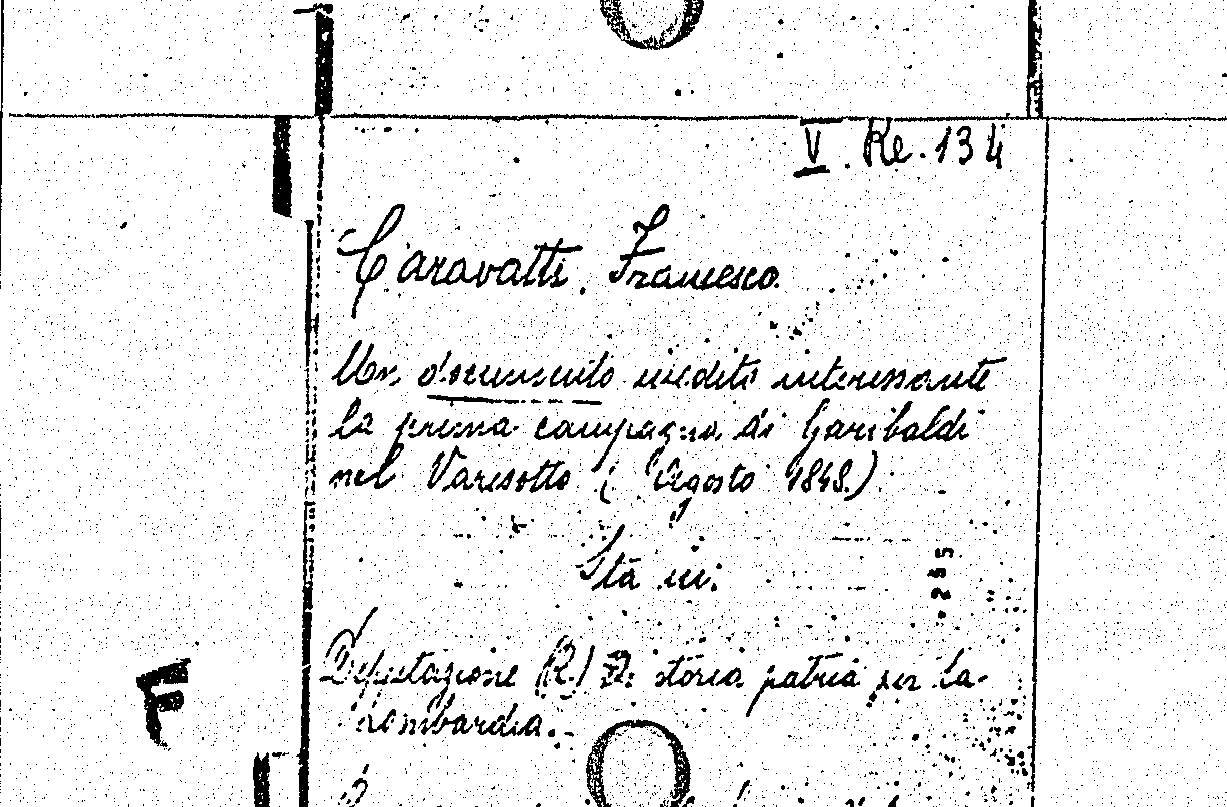 V. Re. 134
Caravatti, Francesco.
Un documento inedito interessante
la prima campagna di Garibaldi
nel Varesotto (Agosto 1848.)
Sta in:
255
Deputazione (R.) Di storia patria per la
Lombardia.
F